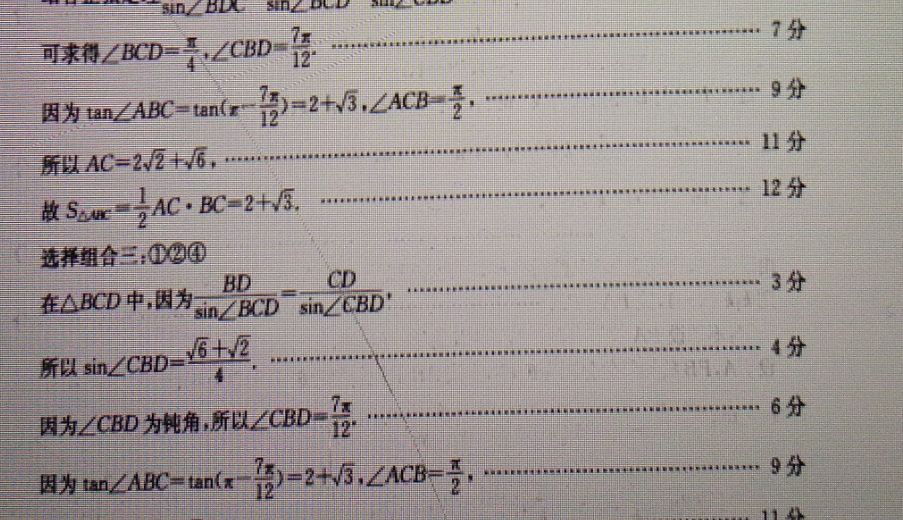 sin∠BDC sin∠BCD
可求得∠BCD=π/4,∠CBD=7π/12. 7分
因为 tan∠ABC=tan(π-7π/12)=2+√3,∠ACB=π/2, 9分
所以 AC=2√2+√6, 11分
故 S△ABC=1/2 AC·BC=2+√3. 12分
选择组合三:①②④
在△BCD中,因为 BD/sin∠BCD=CD/sin∠CBD, 3分
所以 sin∠CBD=(√6+√2)/4. 4分
因为∠CBD为钝角,所以∠CBD=7π/12. 6分
因为 tan∠ABC=tan(π-7π/12)=2+√3,∠ACB=π/2, 9分
11分